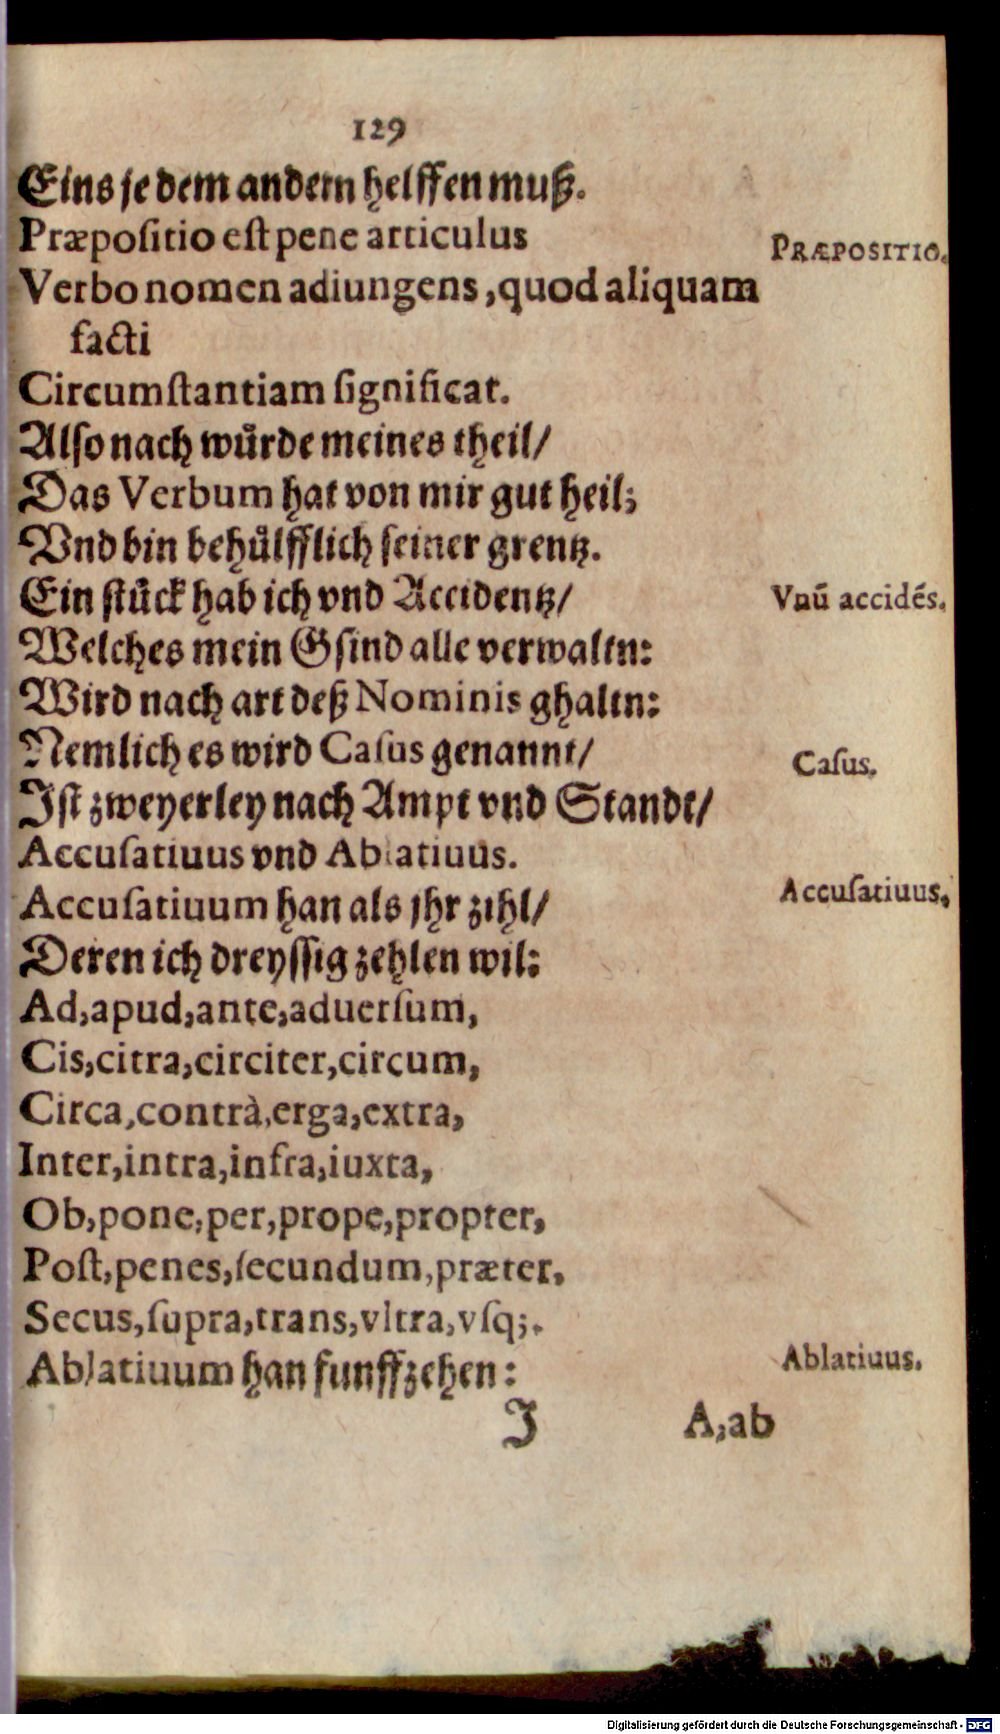 129
Eins je dem andern helffen muß.
Præpoſitio eſt pene articulus
PRÆPOSITIO.
Verbo nomen adiungens, quod aliquam
facti
Circumſtantiam ſignificat.
Alſo nach wuͤrde meines theil/
Das Verbum hat von mir gut heil;
Vnd bin behuͤlfflich ſeiner grentz.
Ein ſtuͤck hab ich vnd Accidentz/
Vnū accidēs.
Welches mein Gſind alle verwaltn:
Wird nach art deß Nominis ghaltn:
Nemlich es wird Caſus genannt/
Caſus.
Jſt zweyerley nach Ampt vnd Standt/
Accuſatiuus vnd Ablatiuus.
Accuſatiuum han als jhr zihl/
Accuſatiuus.
Deren ich dreyſſig zehlen wil:
Ad, apud, ante, aduerſum,
Cis, citra, circiter, circum,
Circa, contrà, erga, extra,
Inter, intra, infra, iuxta,
Ob, pone, per, prope, propter,
Poſt, penes, ſecundum, præter,
Secus, ſupra, trans, vltra, vſq;.
Ablatiuum han funffzehen:
Ablatiuus.
J A, ab
Digitalisierung gefördert durch die Deutsche Forschungsgemeinschaft - DFG